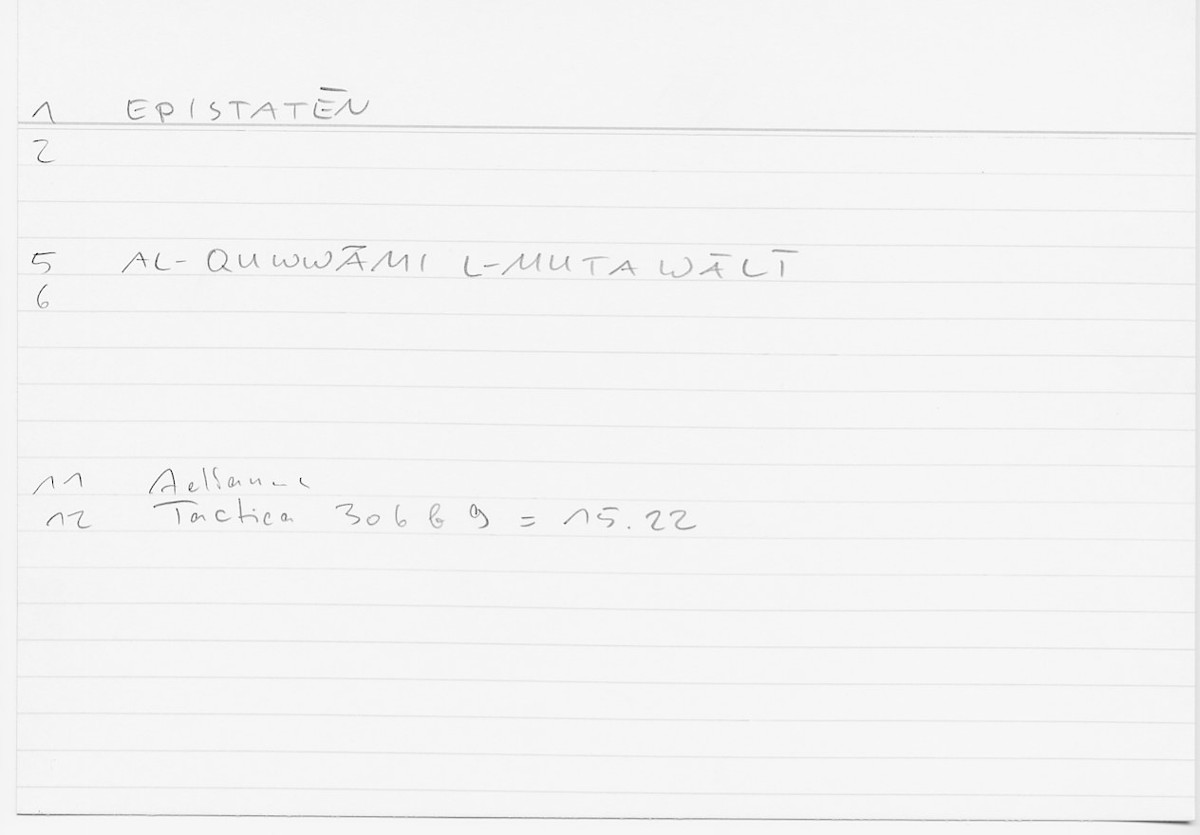 1 EPISTATĒN
2
5 AL-QUWWĀMI L-MUTAWĀLĪ
6
11 Aelianus
12 Tactica 306 b 9 = 15.22